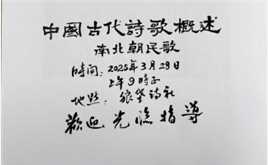 中國古代詩歌概述
南北朝民歌
时间：2025年3月28日
上午9時正
地點：狼华詩社
歡迎光臨指導